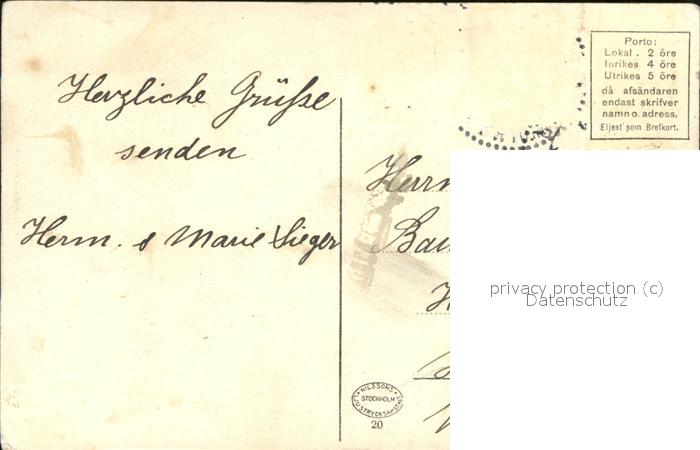 Porto:
Lokal . 2 öre
Inrikes 4 öre
Utrikes 5 öre
då afsändaren
endast skrifver
namn o. adress.
Eljest som Brefkort.
Herzliche Grüße
senden
Herm. & Marie Sieger
Herrn
privacy protection (c)
Datenschutz
NILSSONS
STOCKHOLM
LJUSTRYCKSANSTALT
20